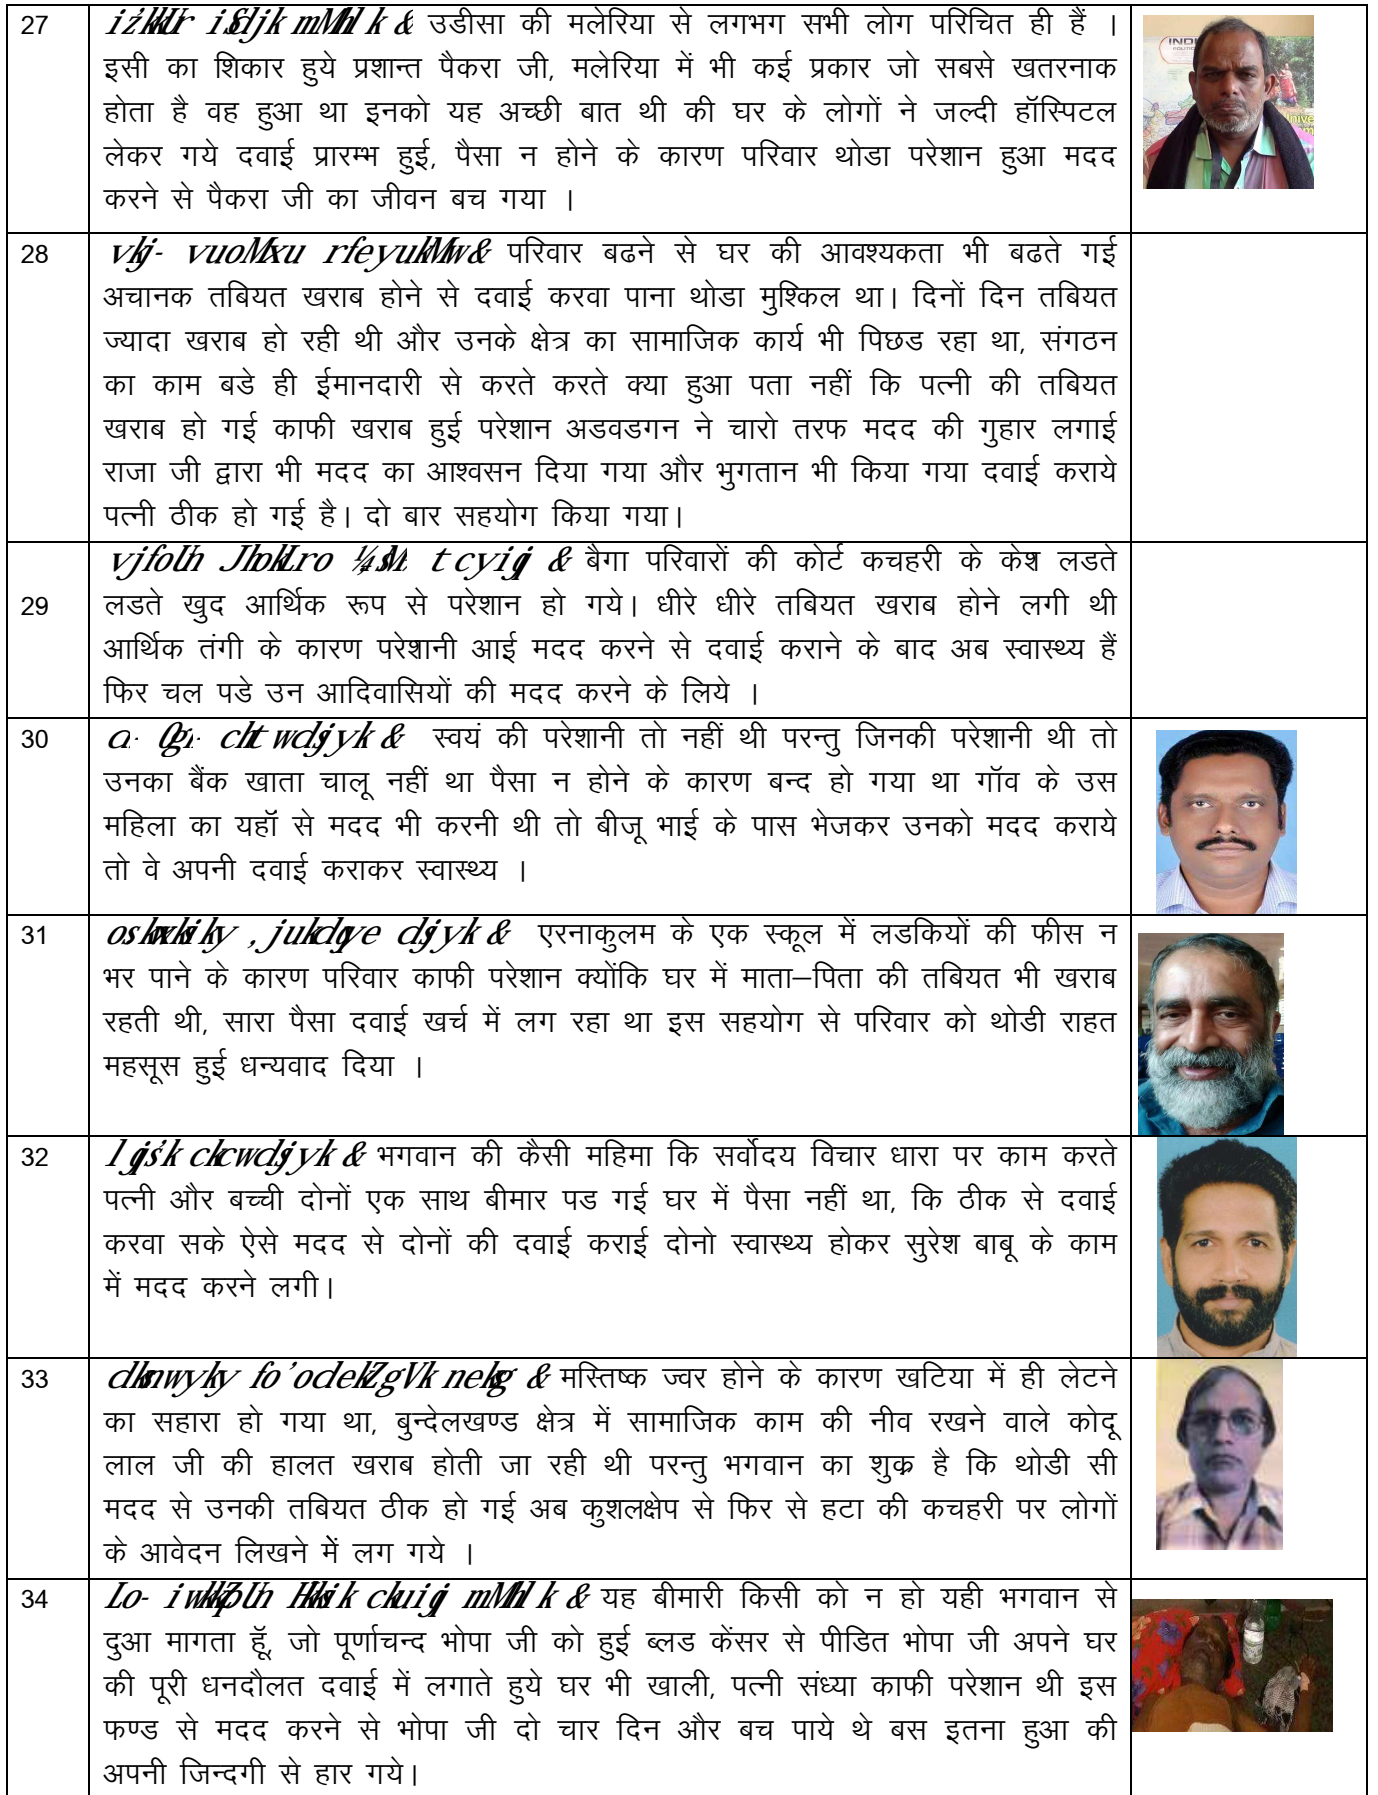 27 उडीसा की मलेरिया से लगभग सभी लोग परिचित ही हैं ।
इसी का शिकार हुये प्रशान्त पैकरा जी, मलेरिया में भी कई प्रकार जो सबसे खतरनाक
होता है वह हुआ था इनको यह अच्छी बात थी की घर के लोगों ने जल्दी हॉस्पिटल
लेकर गये दवाई प्रारम्भ हुई, पैसा न होने के कारण परिवार थोडा परेशान हुआ मदद
करने से पैकरा जी का जीवन बच गया ।
28 परिवार बढने से घर की आवश्यकता भी बढते गई
अचानक तबियत खराब होने से दवाई करवा पाना थोडा मुश्किल था। दिनों दिन तबियत
ज्यादा खराब हो रही थी और उनके क्षेत्र का सामाजिक कार्य भी पिछड रहा था, संगठन
का काम बडे ही ईमानदारी से करते करते क्या हुआ पता नहीं कि पत्नी की तबियत
खराब हो गई काफी खराब हुई परेशान अडवडगन ने चारो तरफ मदद की गुहार लगाई
राजा जी द्वारा भी मदद का आश्वसन दिया गया और भुगतान भी किया गया दवाई कराये
पत्नी ठीक हो गई है। दो बार सहयोग किया गया।
& बैगा परिवारों की कोर्ट कचहरी के केश लडते
29 लडते खुद आर्थिक रूप से परेशान हो गये। धीरे धीरे तबियत खराब होने लगी थी
आर्थिक तंगी के कारण परेशानी आई मदद करने से दवाई कराने के बाद अब स्वास्थ्य हैं
फिर चल पडे उन आदिवासियों की मदद करने के लिये ।
30 स्वयं की परेशानी तो नहीं थी परन्तु जिनकी परेशानी थी तो
उनका बैंक खाता चालू नहीं था पैसा न होने के कारण बन्द हो गया था गॉव के उस
महिला का यहॉ से मदद भी करनी थी तो बीजू भाई के पास भेजकर उनको मदद कराये
तो वे अपनी दवाई कराकर स्वास्थ्य ।
31 एरनाकुलम के एक स्कूल में लडकियों की फीस न
भर पाने के कारण परिवार काफी परेशान क्योंकि घर में माता–पिता की तबियत भी खराब
रहती थी, सारा पैसा दवाई खर्च में लग रहा था इस सहयोग से परिवार को थोडी राहत
महसूस हुई धन्यवाद दिया ।
32 भगवान की कैसी महिमा कि सर्वोदय विचार धारा पर काम करते
पत्नी और बच्ची दोनों एक साथ बीमार पड गई घर में पैसा नहीं था, कि ठीक से दवाई
करवा सके ऐसे मदद से दोनों की दवाई कराई दोनो स्वास्थ्य होकर सुरेश बाबू के काम
में मदद करने लगी।
33 मस्तिष्क ज्वर होने के कारण खटिया में ही लेटने
का सहारा हो गया था, बुन्देलखण्ड क्षेत्र में सामाजिक काम की नीव रखने वाले कोदू
लाल जी की हालत खराब होती जा रही थी परन्तु भगवान का शुक्र है कि थोडी सी
मदद से उनकी तबियत ठीक हो गई अब कुशलक्षेप से फिर से हटा की कचहरी पर लोगों
के आवेदन लिखने में लग गये ।
34 यह बीमारी किसी को न हो यही भगवान से
दुआ मागता हॅू, जो पूर्णाचन्द भोपा जी को हुई ब्लड केंसर से पीडित भोपा जी अपने घर
की पूरी धनदौलत दवाई में लगाते हुये घर भी खाली, पत्नी संध्या काफी परेशान थी इस
फण्ड से मदद करने से भोपा जी दो चार दिन और बच पाये थे बस इतना हुआ की
अपनी जिन्दगी से हार गये।